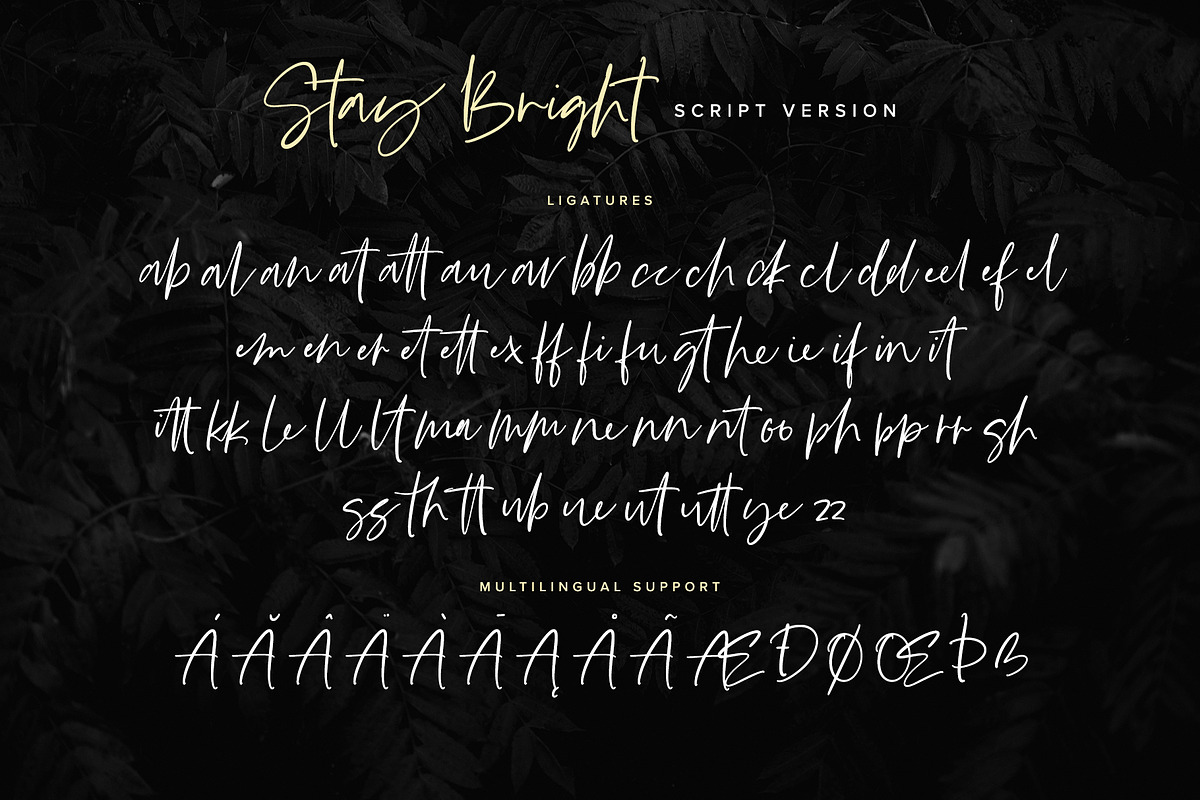 Stay Bright SCRIPT VERSION
LIGATURES
ab al an at att au av bb cc ch ck cl dd eel ef el
em en er et ett ex ff fi fu gt he ie if in it
itt kk le ll lt ma mm ne nn nt oo ph pp rr sh
ss th tt ub ue ut utt ye 22
MULTILINGUAL SUPPORT
Á Ă Â Ä À Ā Ą Å Ã Æ Ð Ø Œ Þ ß